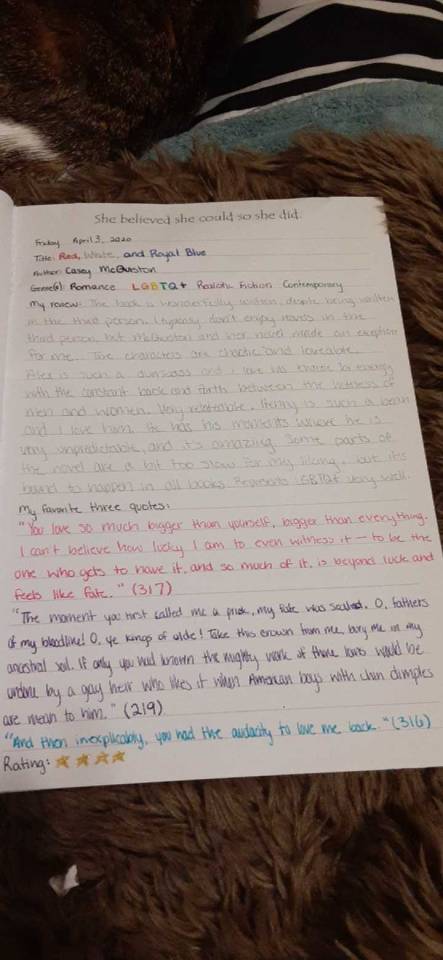 She believed she could so she did.
Friday April 3, 2020
Title: Red, White, and Royal Blue
Author: Casey McQuiston
Genre(s): Romance LGBTQ+ Realistic Fiction Contemporary
My review: The book is wonderfully written, despite being written
in the third person. I typically don't enjoy novels in the
third person, but McQuiston and her novel made an exception
for me. The characters are chaotic and loveable.
Alex is such a and I love his chaotic bi energy
with the constant back and forth between the hotness of
men and women. Very relateable. Henry is such a bean
and I love him. He has his moments where he is
very unpredictable, and it's amazing. Some parts of
the novel are a bit too slow for my liking, but it's
bound to happen in all books. Represents LGBTQ+ very well.
My favorite three quotes:
"You love so much bigger than yourself, bigger than everything.
I can't believe how lucky I am to even witness it — to be the
one who gets to have it, and so much of it, is beyond luck and
feels like fate." (317)
"The moment you first called me a prick, my fate was sealed. O, fathers
of my bloodline! O, ye kings of olde! Take this crown from me, bury me in my
ancestral soil. If only you had known the mighty work of thine loins would be
undone by a gay heir who likes it when American boys with chin dimples
are mean to him." (219)
"And then inexplicably, you had the audacity to love me back." (316)
Rating: